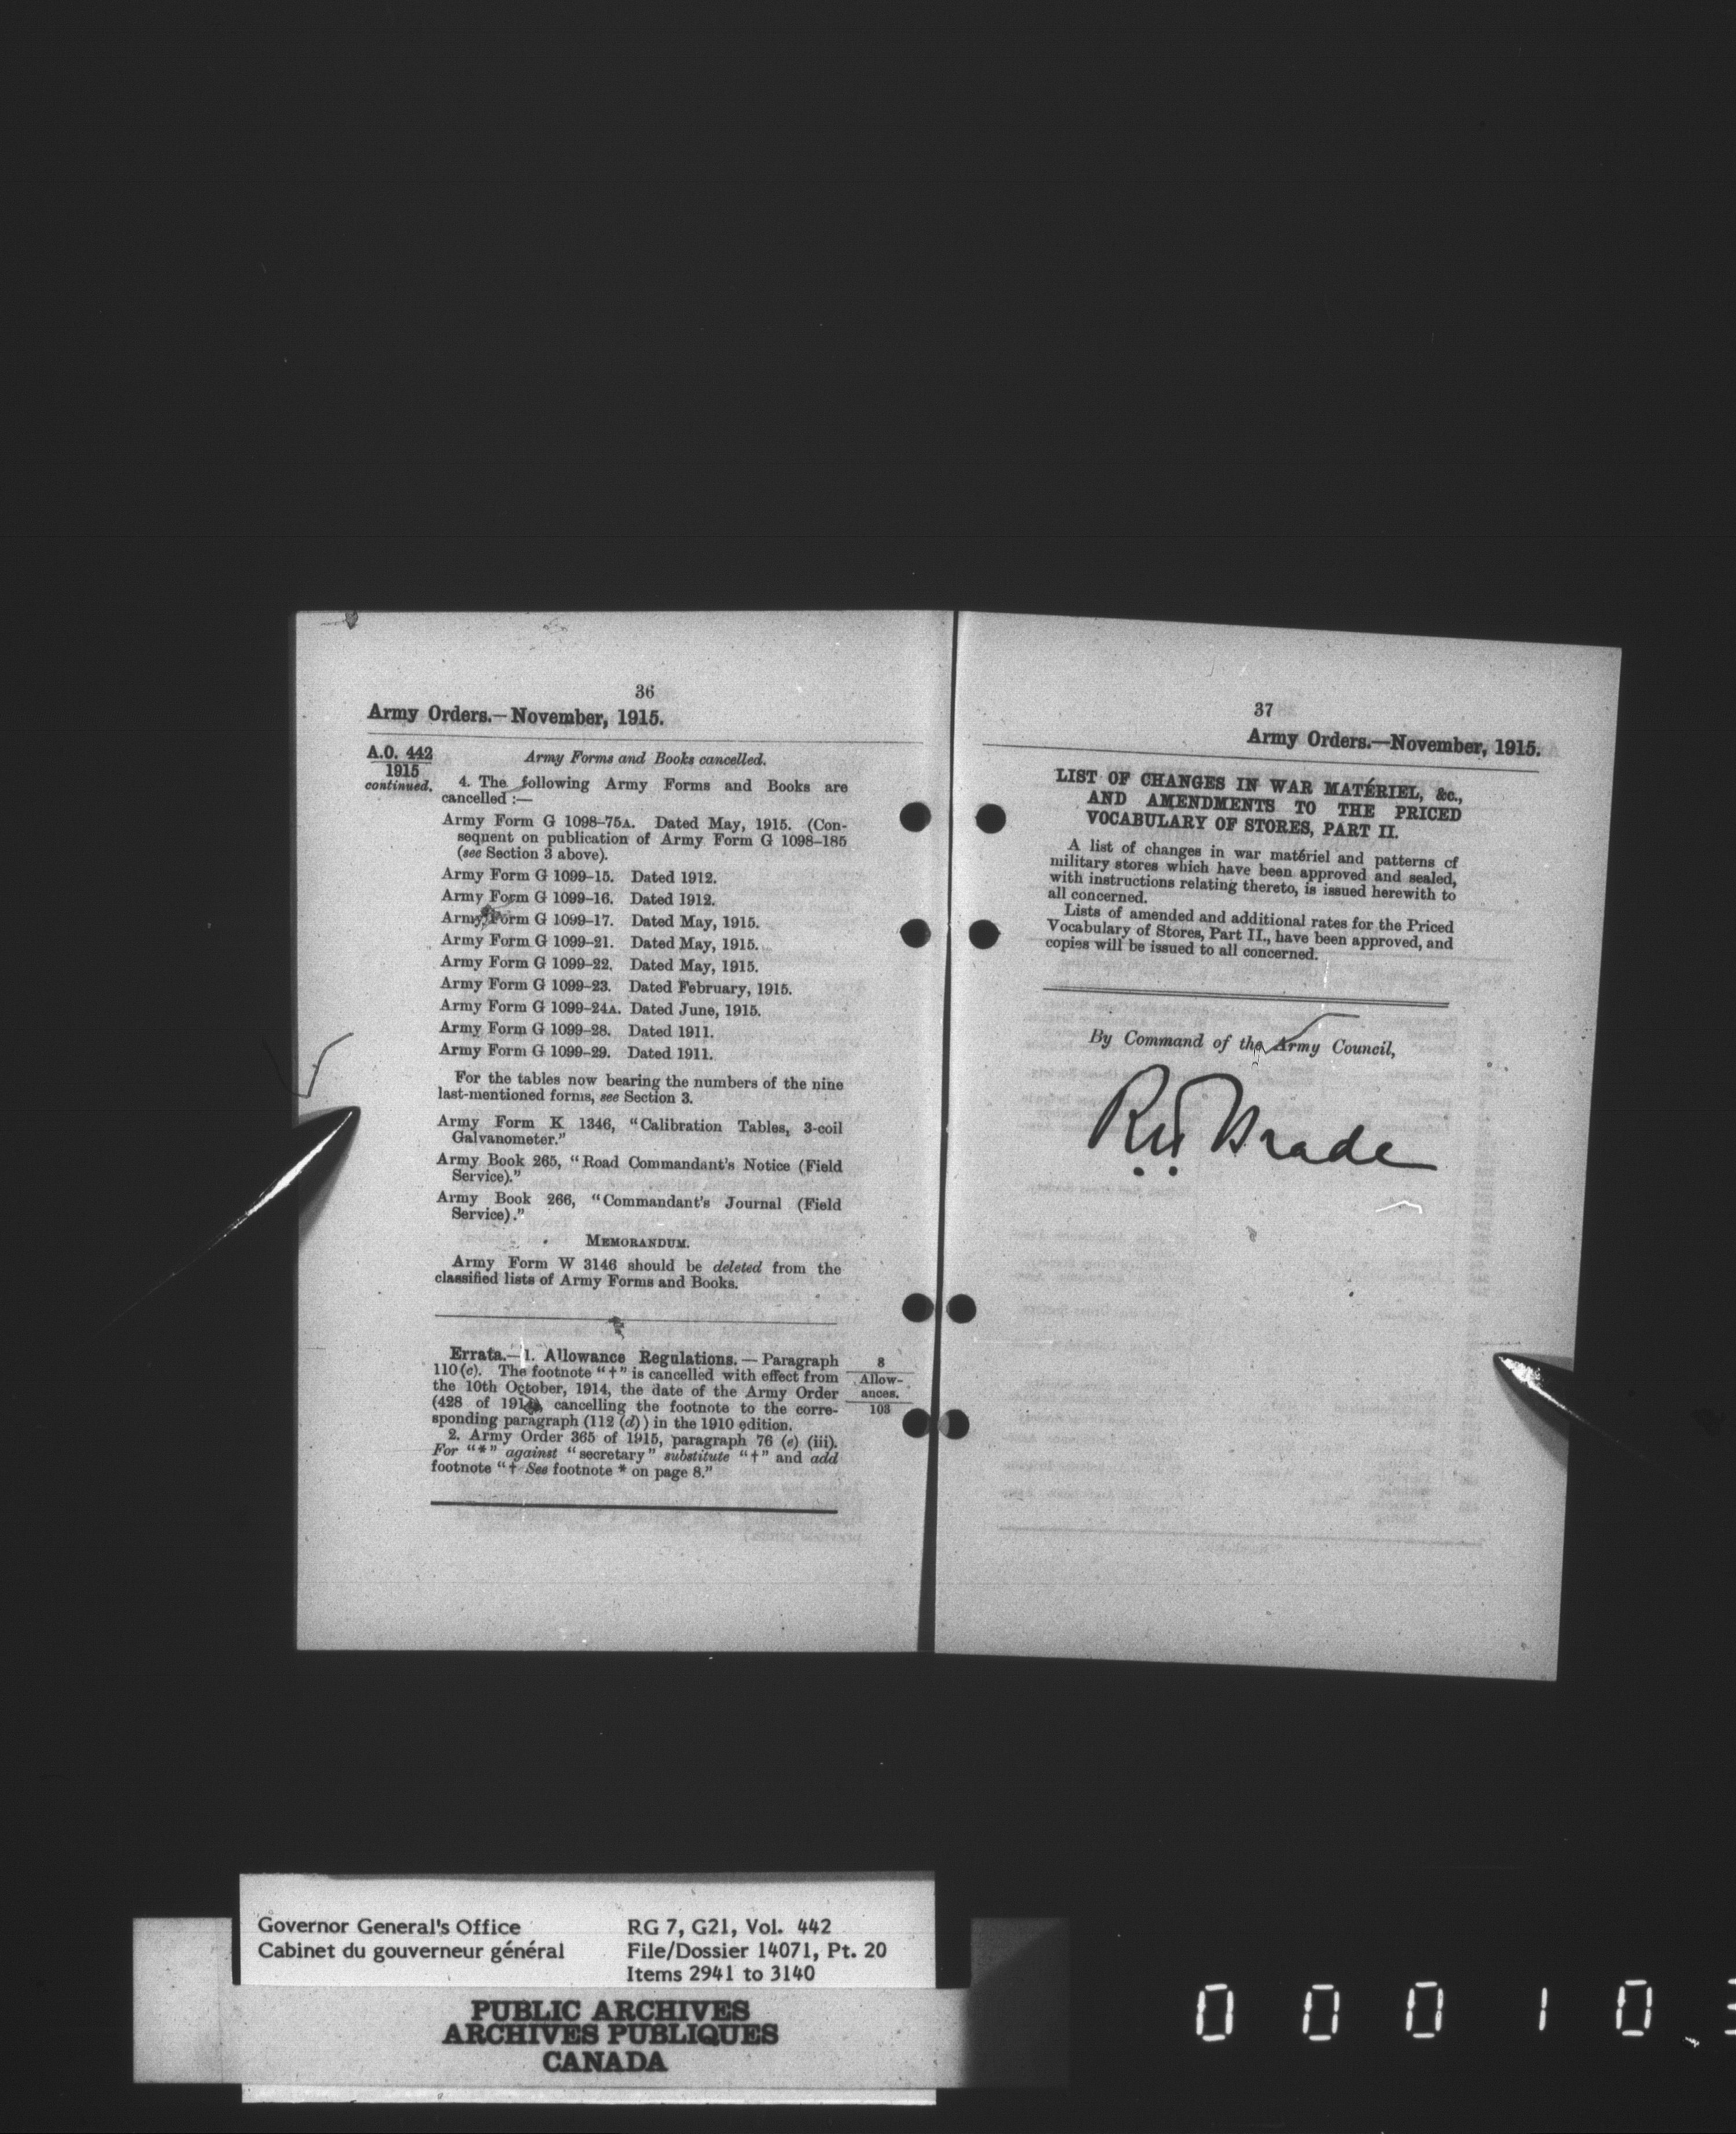 36
Army Orders.—November, 1915.
A.O. 442
1915
continued.
Army Forms and Books cancelled.
4. The following Army Forms and Books are
cancelled :—
Army Form G 1098–75A. Dated May, 1915. (Con-
sequent on publication of Army Form G 1098–185
(see Section 3 above).
Army Form G 1099–15. Dated 1912.
Army Form G 1099–16. Dated 1912.
Army Form G 1099–17. Dated May, 1915.
Army Form G 1099–21. Dated May, 1915.
Army Form G 1099–22. Dated May, 1915.
Army Form G 1099–23. Dated February, 1915.
Army Form G 1099–24A. Dated June, 1915.
Army Form G 1099–28. Dated 1911.
Army Form G 1099–29. Dated 1911.
For the tables now bearing the numbers of the nine
last-mentioned forms, see Section 3.
Army Form K 1346, “Calibration Tables, 3-coil
Galvanometer.”
Army Book 265, “Road Commandant's Notice (Field
Service).”
Army Book 266, “Commandant's Journal (Field
Service).”
MEMORANDUM.
Army Form W 3146 should be deleted from the
classified lists of Army Forms and Books.
Errata.—1. Allowance Regulations. — Paragraph
110 (c). The footnote “†” is cancelled with effect from
the 10th October, 1914, the date of the Army Order
(428 of 1914), cancelling the footnote to the corre-
sponding paragraph (112 (d)) in the 1910 edition.
2. Army Order 365 of 1915, paragraph 76 (e) (iii).
For “*” against “secretary” substitute “†” and add
footnote “† See footnote * on page 8.”
8
Allow-
ances.
103
37
Army Orders.—November, 1915.
LIST OF CHANGES IN WAR MATÉRIEL, &c.,
AND AMENDMENTS TO THE PRICED
VOCABULARY OF STORES, PART II.
A list of changes in war matériel and patterns of
military stores which have been approved and sealed,
with instructions relating thereto, is issued herewith to
all concerned.
Lists of amended and additional rates for the Priced
Vocabulary of Stores, Part II., have been approved, and
copies will be issued to all concerned.
By Command of the Army Council,
R H Brade
Governor General's Office
Cabinet du gouverneur général
RG 7, G21, Vol. 442
File/Dossier 14071, Pt. 20
Items 2941 to 3140
PUBLIC ARCHIVES
ARCHIVES PUBLIQUES
CANADA
0 0 0 1 0